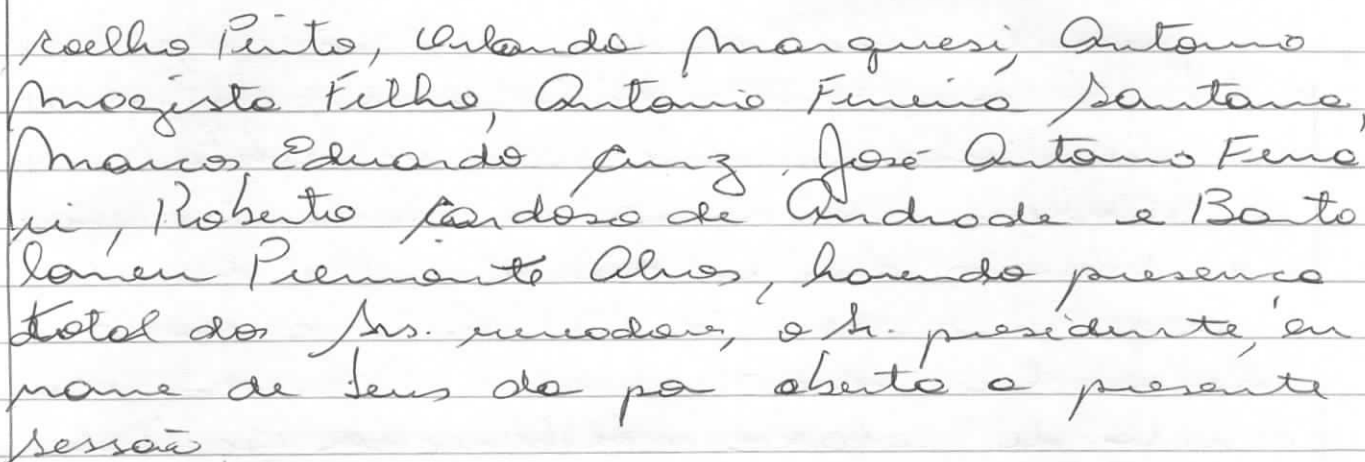 Coelho Pinto, Orlando Marquesi, Antonio
Magista Filho, Antonio Ferreira Santana,
Marcos Eduardo Cruz, José Antonio Ferra
ri, Roberto Cardoso de Andrade e Barto
lomeu Piemonte Alves, havendo presença
total dos Srs. vereadores, o Sr. presidente, em
nome de Deus da por aberto a presente
sessão